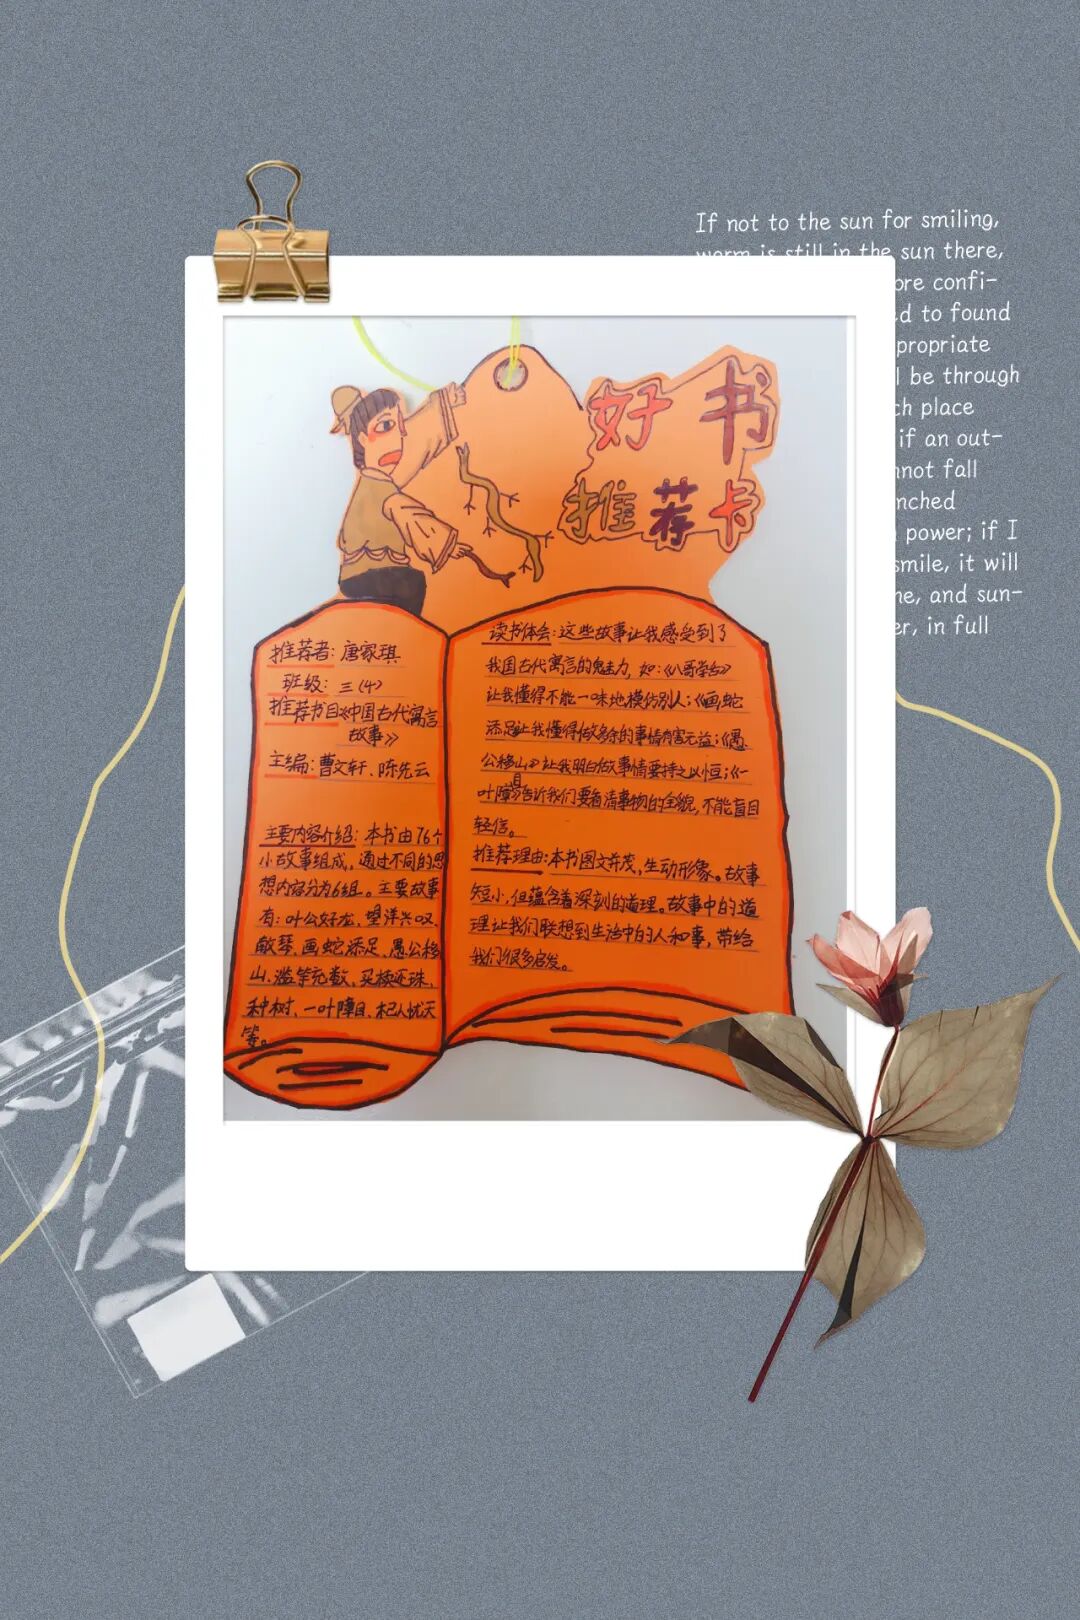 If not to the sun for smiling,
warm is still in the sun there,
ore confi-
ed to found
propriate
l be through
ch place
if an out-
nnot fall
nched
power; if I
smile, it will
ne, and sun-
er, in full
好书
推荐卡
推荐者：唐家琪
班级：三(4)
推荐书目《中国古代寓言
故事》
主编：曹文轩、陈先云
主要内容介绍：本书由76个
小故事组成，通过不同的思
想内容分为6组。主要故事
有：叶公好龙，望洋兴叹、
献琴、画蛇添足、愚公移
山、滥竽充数、买椟还珠、
种树、一叶障目、杞人忧天
等。
读书体会：这些故事让我感受到了
我国古代寓言的魅力，如：《八哥学舌》
让我懂得不能一味地模仿别人；《画蛇
添足》让我懂得做多余的事情有害无益；《愚
公移山》让我明白做事情要持之以恒；《一
叶障目》告诉我们要看清事物的全貌，不能盲目
轻信。
推荐理由：本书图文并茂，生动形象。故事
短小，但蕴含着深刻的道理。故事中的道
理让我们联想到生活中的人和事，带给
我们很多启发。